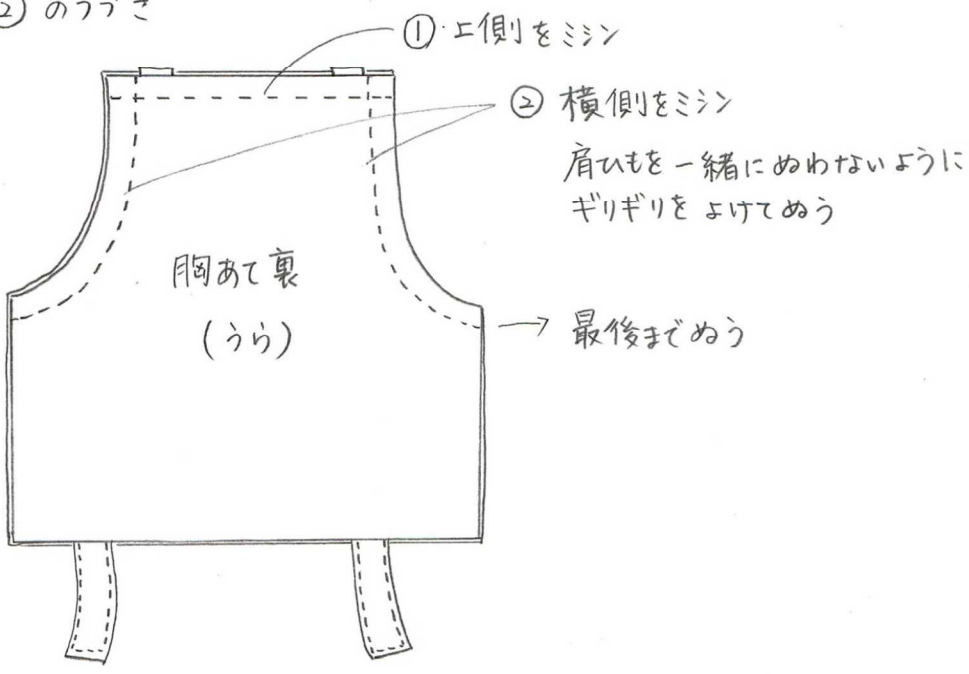 ② のつづき
① 上側をミシン
② 横側をミシン
肩ひもを一緒にぬわないように
ギリギリをよけてぬう
胸あて裏
(うら)
→ 最後までぬう